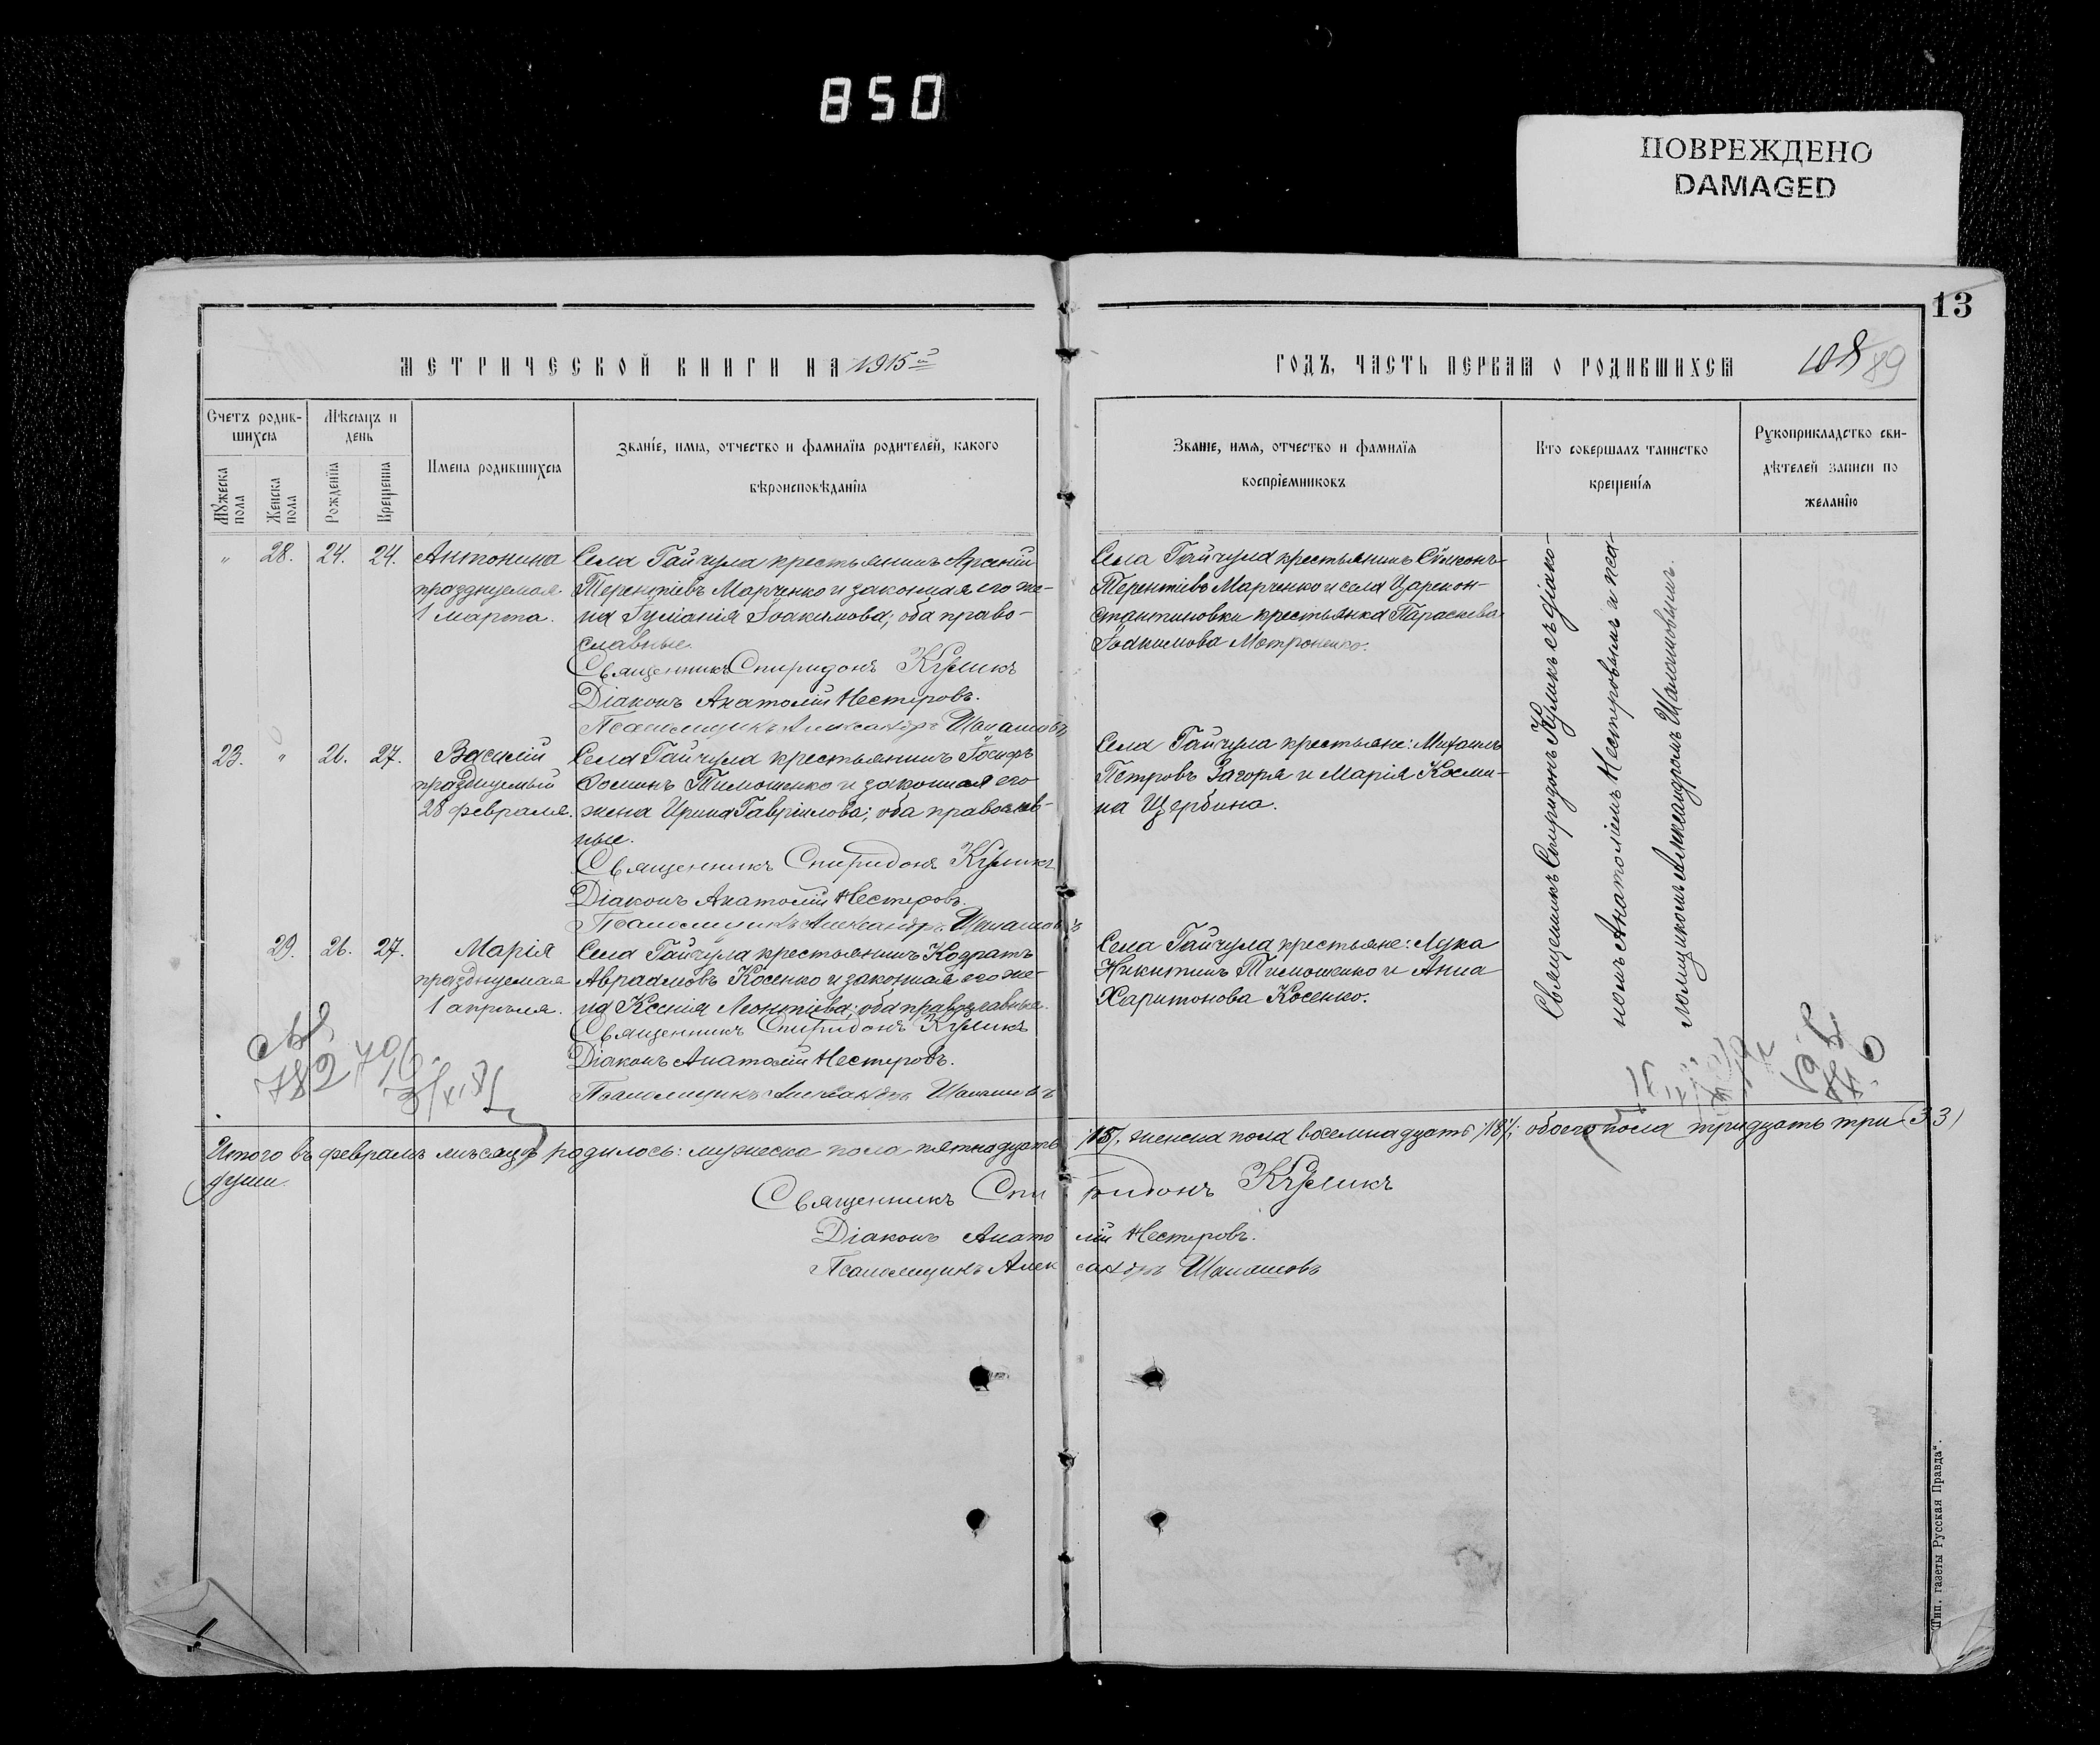 850
ПОВРЕЖДЕНО
DAMAGED
13
МЕТРИЧЕСКОЙ КНИГИ НА 1915й
ГОДЪ, ЧАСТЬ ПЕРВАЯ О РОДИВШИХСЯ
108 89
Счетъ родив-
шихся
Мѣсяцъ и
день
Мужеска
пола
Женска
пола
Рожденїя
Крещенїя
Имена родившихся
Званїе, имя, отчество и фамилїя родителей, какого
вѣроисповѣданїя
Званїе, имя, отчество и фамилїя
воспрїемниковъ
Кто совершалъ таинство
крещенїя
Рукоприкладство сви-
дѣтелей записи по
желанїю
" 28. 24. 24. Антонина
празднуемая
1 марта.
Села Гайчула крестьянинъ Арсеній
Терентіевъ Марченко и законная его же-
на Іуліанія Іоакимова; оба право-
славные.
Священникъ Спиридонъ Куликъ
Діаконъ Анатолій Нестеровъ.
Псаломщикъ Александръ
Села Гайчула крестьянинъ Сѵмеонъ
Терентіевъ Марченко и села Царекон-
стантиновки крестьянка Параскева
Іоакимова Матроненко.
23. " 26. 27. Василій
празднуемый
28 февраля.
Села Гайчула крестьянинъ Іосифъ
Ѳоминъ Тимошенко и законная его
жена Ирина Гавріилова; оба православ-
ные.
Священникъ Спиридонъ Куликъ
Діаконъ Анатолій Нестеровъ.
Псаломщикъ Александръ
Села Гайчула крестьяне: Михаилъ
Петровъ Загоря и Марія Косми-
на Щербина.
29. 26. 27. Марія
празднуемая
1 апрѣля.
Села Гайчула крестьянинъ Кодратъ
Авраамовъ Косенко и законная его же-
на Ксенія Леонтіева; оба православные.
Священникъ Спиридонъ Куликъ
Діаконъ Анатолій Нестеровъ.
Псаломщикъ Александръ
Села Гайчула крестьяне: Лука
Никитинъ Тимошенко и Анна
Харитонова Косенко.
Священникъ Спиридонъ Куликъ съ діако-
номъ Анатоліемъ Нестеровымъ и пса-
ломщикомъ Александромъ
Итого въ февралѣ мѣсяцѣ родилось: мужеска пола пятнадцать /15/, женска пола восемнадцать /18/; обоего пола тридцать три (33)
души.
Священникъ Спиридонъ Куликъ
Діаконъ Анатолій Нестеровъ.
Псаломщикъ Александръ
Тип. газеты Русская Правда“.